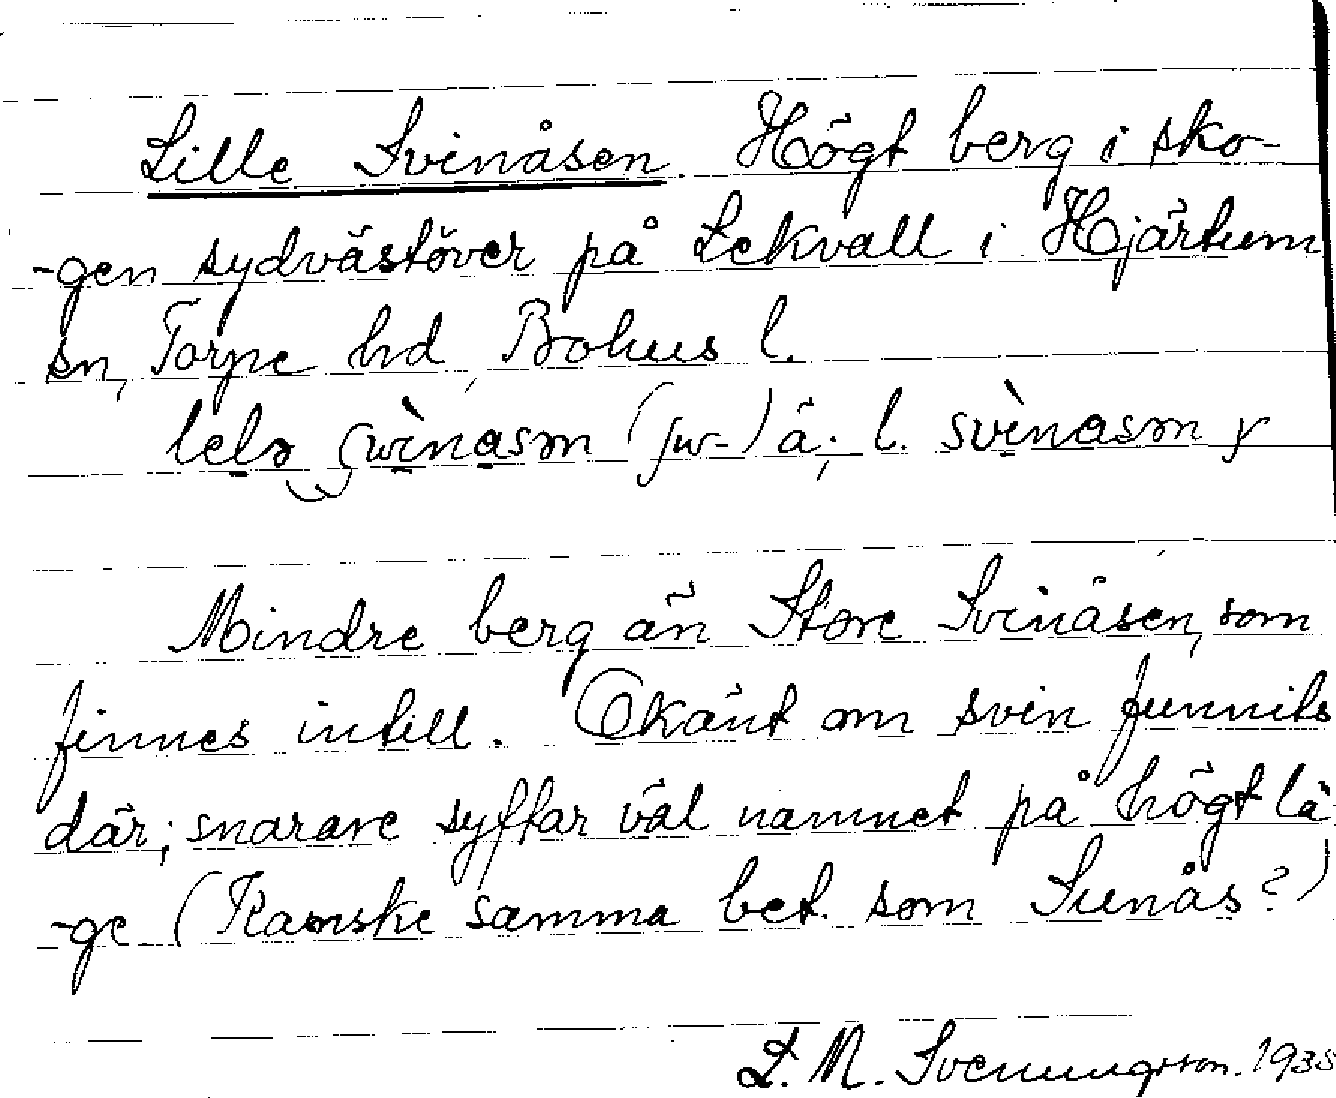 Lille Svinåsen. Högt berg i sko-
-gen sydvästöver på Lekvall i Hjärtum
sn, Torpe hd, Bohus l.
(sw-) ä.; l. y
Mindre berg än Store Svinåsen, som
finnes intill. Okänt om svin funnits
där; snarare syftar väl namnet på högt lä
-ge (Kanske samma bet. som Sunås?)
L. M. Svenungsson. 1938